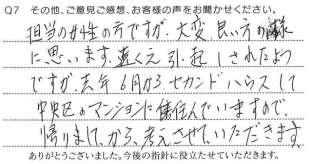 Q7 その他、ご意見ご感想、お客様の声をお聞かせください。
担当の女性の方ですが、大変、良い方の様
に思います。遠くえ引越しされたよう
ですが、去年6月から、セカンドハウスして
中央区のマンションに住んでいますので、
帰りまして、から、考えさせて、いただきます。
ありがとうございました。今後の指針に役立たせていただきます。